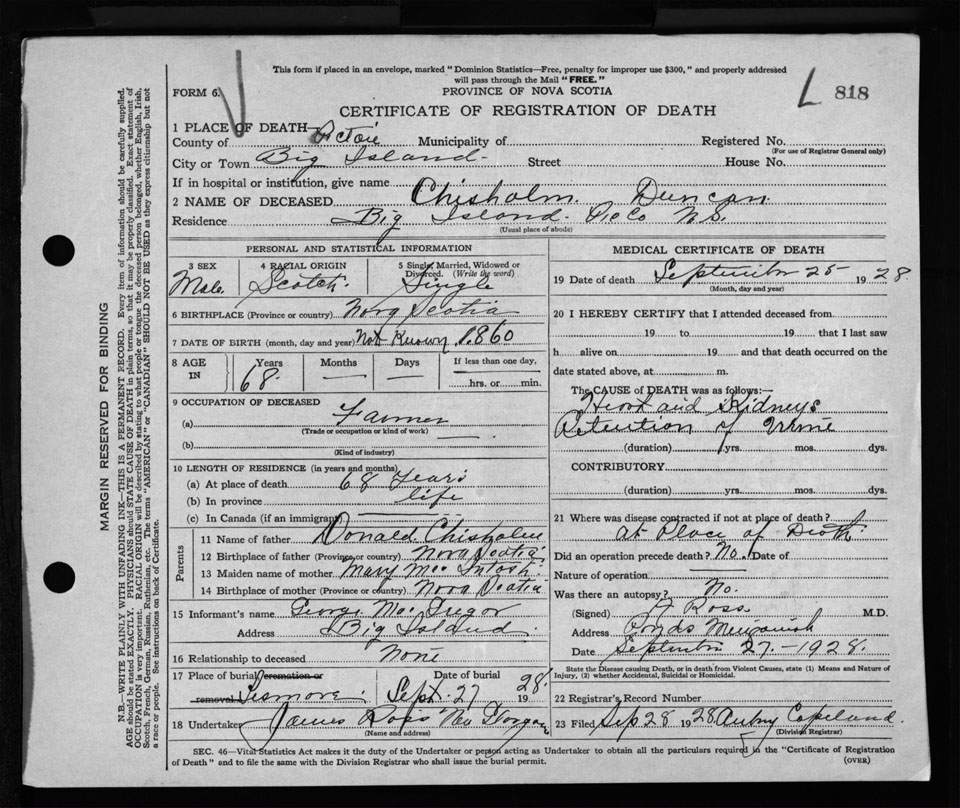 This form if placed in an envelope, marked "Dominion Statistics—Free, penalty for improper use $300," and properly addressed
will pass through the Mail "FREE."
FORM 6.
PROVINCE OF NOVA SCOTIA
CERTIFICATE OF REGISTRATION OF DEATH
L 818
1 PLACE OF DEATH—
County of Pictou Municipality of Registered No.
(For use of Registrar General only)
City or Town Big Island Street House No.
If in hospital or institution, give name
2 NAME OF DECEASED Chisholm Duncan
Residence Big Island Pic Co N.S.
(Usual place of abode)
PERSONAL AND STATISTICAL INFORMATION
3 SEX Male
4 RACIAL ORIGIN Scotch
5 Single, Married, Widowed or Divorced. (Write the word) Single
6 BIRTHPLACE (Province or country) Nova Scotia
7 DATE OF BIRTH (month, day and year) Not Known 1860
8 AGE IN Years 68 Months — Days — If less than one day, hrs. or min.
9 OCCUPATION OF DECEASED
(a) Farmer
(Trade or occupation or kind of work)
(b)
(Kind of industry)
10 LENGTH OF RESIDENCE (in years and months)
(a) At place of death 68 Years
(b) In province life
(c) In Canada (if an immigrant)
Parents
11 Name of father Donald Chisholm
12 Birthplace of father (Province or country) Nova Scotia
13 Maiden name of mother Mary Mac Intosh
14 Birthplace of mother (Province or country) Nova Scotia
15 Informant's name George Mac Gregor
Address Big Island
16 Relationship to deceased None
17 Place of burial, cremation or removal Lismore Date of burial Sept. 27 1928
18 Undertaker James Ross
(Name and address)
MEDICAL CERTIFICATE OF DEATH
19 Date of death September 25 1928
(Month, day and year)
20 I HEREBY CERTIFY that I attended deceased from
19 to 19 that I last saw
h alive on 19 and that death occurred on the
date stated above, at m.
The CAUSE of DEATH was as follows:—
Heart and Kidneys
Retention of Urine
(duration) yrs. mos. dys.
CONTRIBUTORY
(duration) yrs. mos. dys.
21 Where was disease contracted if not at place of death?
At Place of Death
Did an operation precede death? No. Date of
Nature of operation
Was there an autopsy? No.
(Signed) Ross M.D.
Address
Date September 27 - 1928
State the Disease causing Death, or in death from Violent Causes, state (1) Means and Nature of
Injury, (2) whether Accidental, Suicidal or Homicidal.
22 Registrar's Record Number
23 Filed Sep 28 1928 Copeland
(Division Registrar)
SEC. 46—Vital Statistics Act makes it the duty of the Undertaker or person acting as Undertaker to obtain all the particulars required in the "Certificate of Registration
of Death" and to file the same with the Division Registrar who shall issue the burial permit.
(OVER)
MARGIN RESERVED FOR BINDING
N.B.—WRITE PLAINLY WITH UNFADING INK—THIS IS A PERMANENT RECORD. Every item of information should be carefully supplied.
AGE should be stated EXACTLY. PHYSICIANS should STATE CAUSE OF DEATH in plain terms, so that it may be properly classified. Exact statement of
OCCUPATION is very important. RACIAL ORIGIN will be described by stating to what people or tongue the deceased person belonged, whether English, Irish,
Scotch, French, German, Russian, Ruthenian, etc. The terms "AMERICAN" or "CANADIAN" SHOULD NOT BE USED as they express citizenship but not
a race or people. See instructions on back of Certificate.